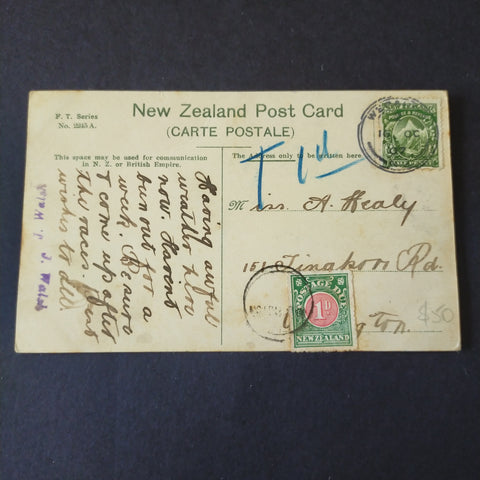 F. T. Series
No. 2315 A.
New Zealand Post Card
(CARTE POSTALE)
This space may be used for communication
in N. Z. or British Empire.
The Address only to be written here
T 1d
Miss. A. Healy
151 Tinakori Rd.
gton.
$50
POSTAGE DUE
1D
NEW ZEALAND
OC
Having awful
weather here
now. Havent
been out for a
week. Be sure
& come up after
the races. Best
wishes to all.
J. Walsh
J. Walsh